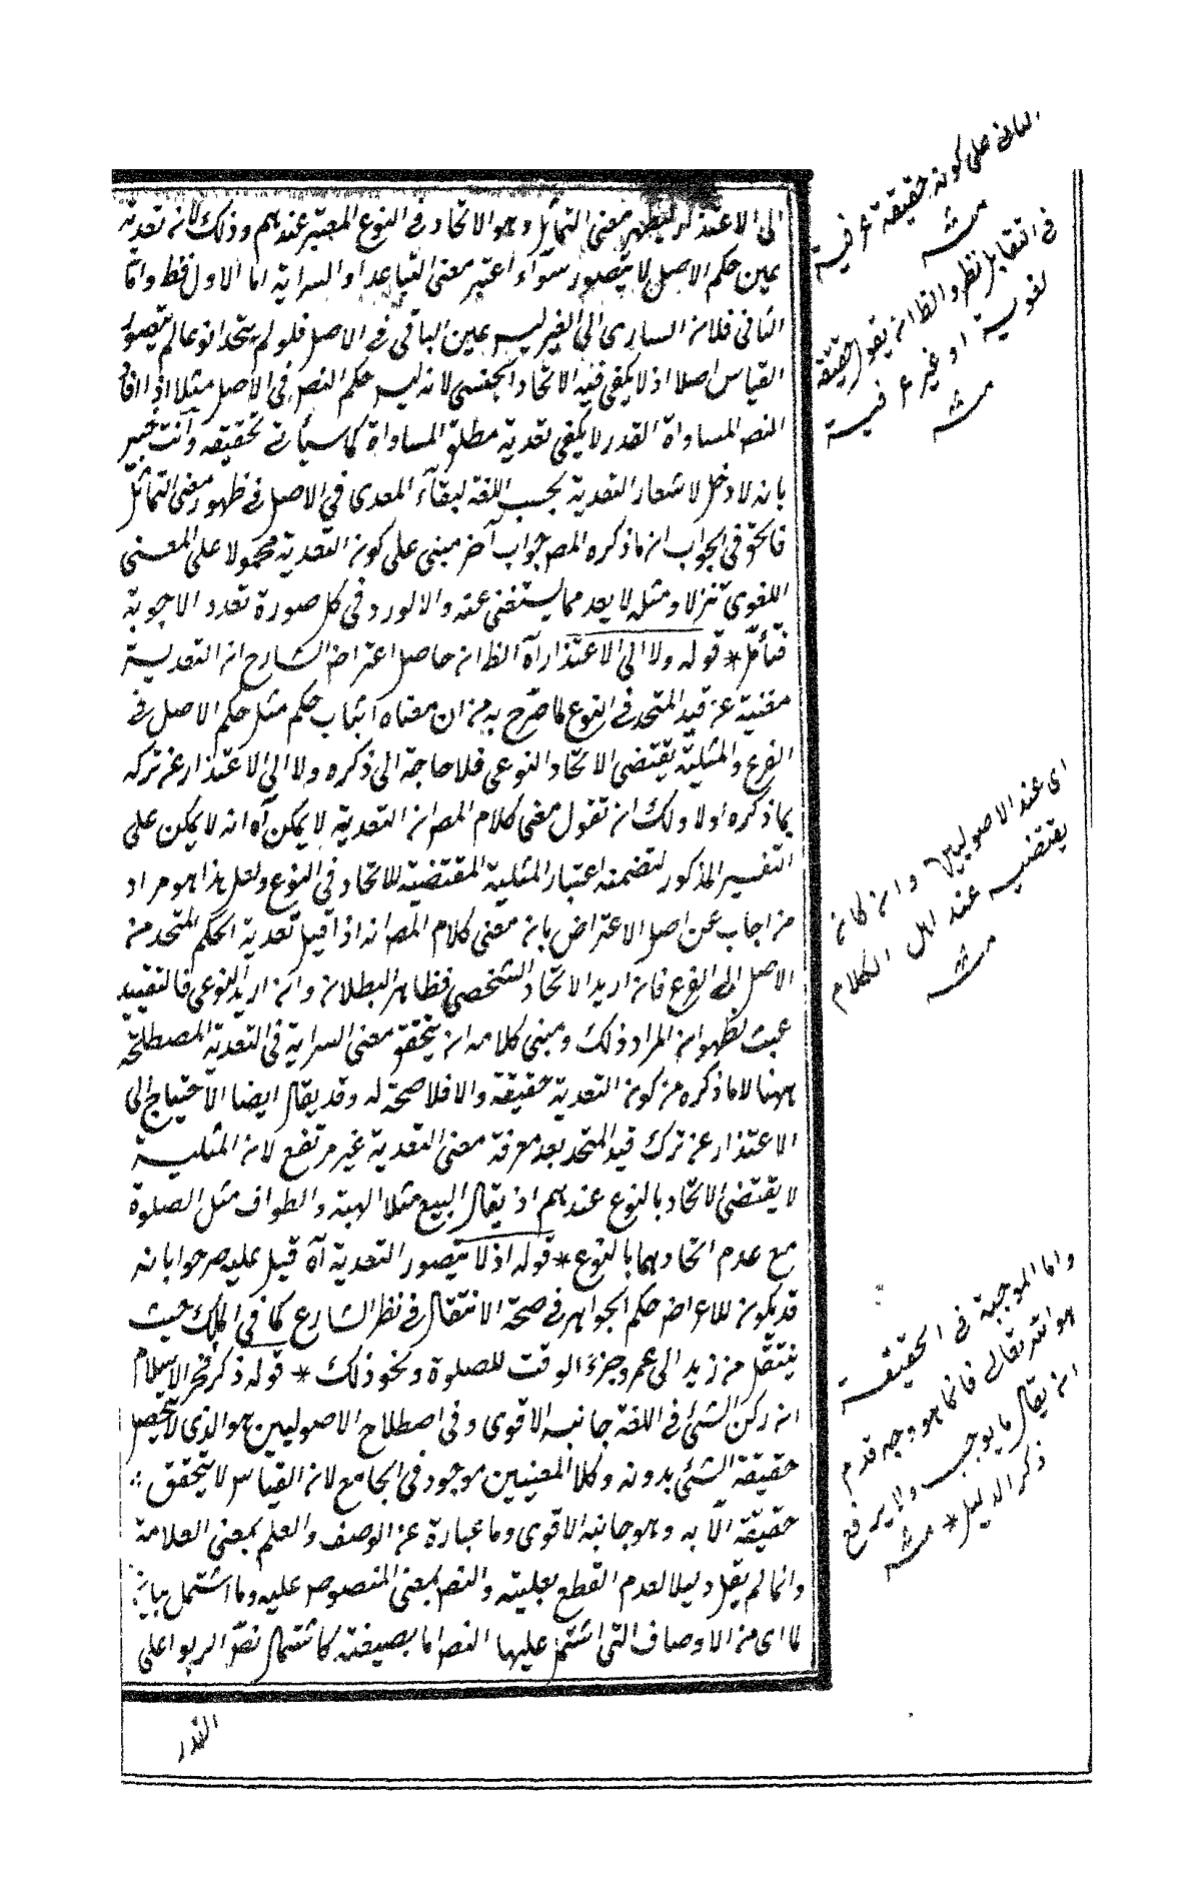 الى الاعتذار ليظهر معنى التماثل وهو الاتحاد فى النوع المعتبر عندهم وذلك لانه تعدية
عين حكم الاصل لا يتصور سوآء اعتبر معنى التباعد او السراية اما الاول فقط واما
الثانى فلان السارى الى الغير ليس عين الباقى فى الاصل فلو لم يتحدا نوعا لم يتصور
القياس اصلا اذ لا يكفى فيه الاتحاد الجنسى لانه ليس حكم النص فى الاصل مثلا اذا افاد
النص المساواة القدر لا يكفى تعدية مطلق المساواة كما سيأتى تحقيقه وانت خبير
بانه لا دخل لاشعار التعدية بحسب اللغة لبقاء المعدى فى الاصل فى ظهور معنى التماثل
فالحق فى الجواب ان ما ذكره المص جواب آخر مبنى على كون التعدية محمولا على المعنى
اللغوى تنزلا ومثله لا يعد مما يستغنى عنه والا لورد فى كل صورة تعدد الاجوبة
فتأمل * قوله ولا الى الاعتذار آه الظ ان حاصل اعتراض الشارح ان التعدية
مغنية عن قيد المتحد فى النوع لما صرح به من ان معناه اثبات حكم مثل حكم الاصل فى
الفرع والمثلية يقتضى الاتحاد النوعى فلا حاجة الى ذكره ولا الى الاعتذار عن تركه
بما ذكره اولا ولك ان تقول معنى كلام المص ان التعدية لا يمكن آه انه لا يمكن على
التفسير المذكور لتضمنه اعتبار المثلية المقتضية للاتحاد فى النوع ولعل هذا هو مراد
من اجاب عن اصل الاعتراض بان معنى كلام المص انه اذا قيل تعدية الحكم المتحد من
الاصل الى الفرع فان اريد الاتحاد الشخصى فظاهر البطلان وان اريد النوعى فالتقييد
عبث لظهور ان المراد ذلك ومبنى كلامه ان يتحقق معنى السراية فى التعدية المصطلحة
ههنا لا ما ذكره من كون التعدية حقيقة والا فلا صحة له وقد يقال ايضا الاحتياج الى
الاعتذار عن ترك قيد المتحد بعد معرفة معنى التعدية غير مرتفع لان المثلية
لا يقتضى الاتحاد بالنوع عندهم اذ يقال البيع مثلا الهبة والطواف مثل الصلوة
مع عدم اتحادهما بالنوع * قوله اذ لا يتصور التعدية آه قيل عليه صرحوا بانه
قد يكون للاعراض حكم الجواهر فى صحة الانتقال فى نظر الشارع كما فى الملك حيث
ينتقل من زيد الى عمرو جزء الوقت للصلوة ونحو ذلك * قوله ذكر فخر الاسلام
ان ركن الشئ فى اللغة جانبه الاقوى وفى اصطلاح الاصوليين هو الذى لا يحصل
حقيقة الشئ بدونه وكلا المعنيين موجود فى الجامع لان القياس لا يتحقق
حقيقة الا به وهو جانبه الاقوى وما عبارة عن الوصف والعلم بمعنى العلامة
وانما لم يقل دليلا لعدم القطع بعليته والنص بمعنى المنصوص عليه وما اشتمل بيان
لما اى من الاوصاف التى اشتمل عليها النص اما بصيغته كاشتمال نص الربوا على
القدر
على كونه حقيقة عرفية
منه
فى التقابل نظر والظ ان يقول حقيقة
لغوية او غير عرفية
منه
اى عند الاصوليين وان كان
يقتضيه عند اهل الكلام
منه
واما الموجبة فى الحقيقة
هو الله تعالى فانما هو وجه قدم
ان يقال ما يوجب
ذكر الدليل * منه